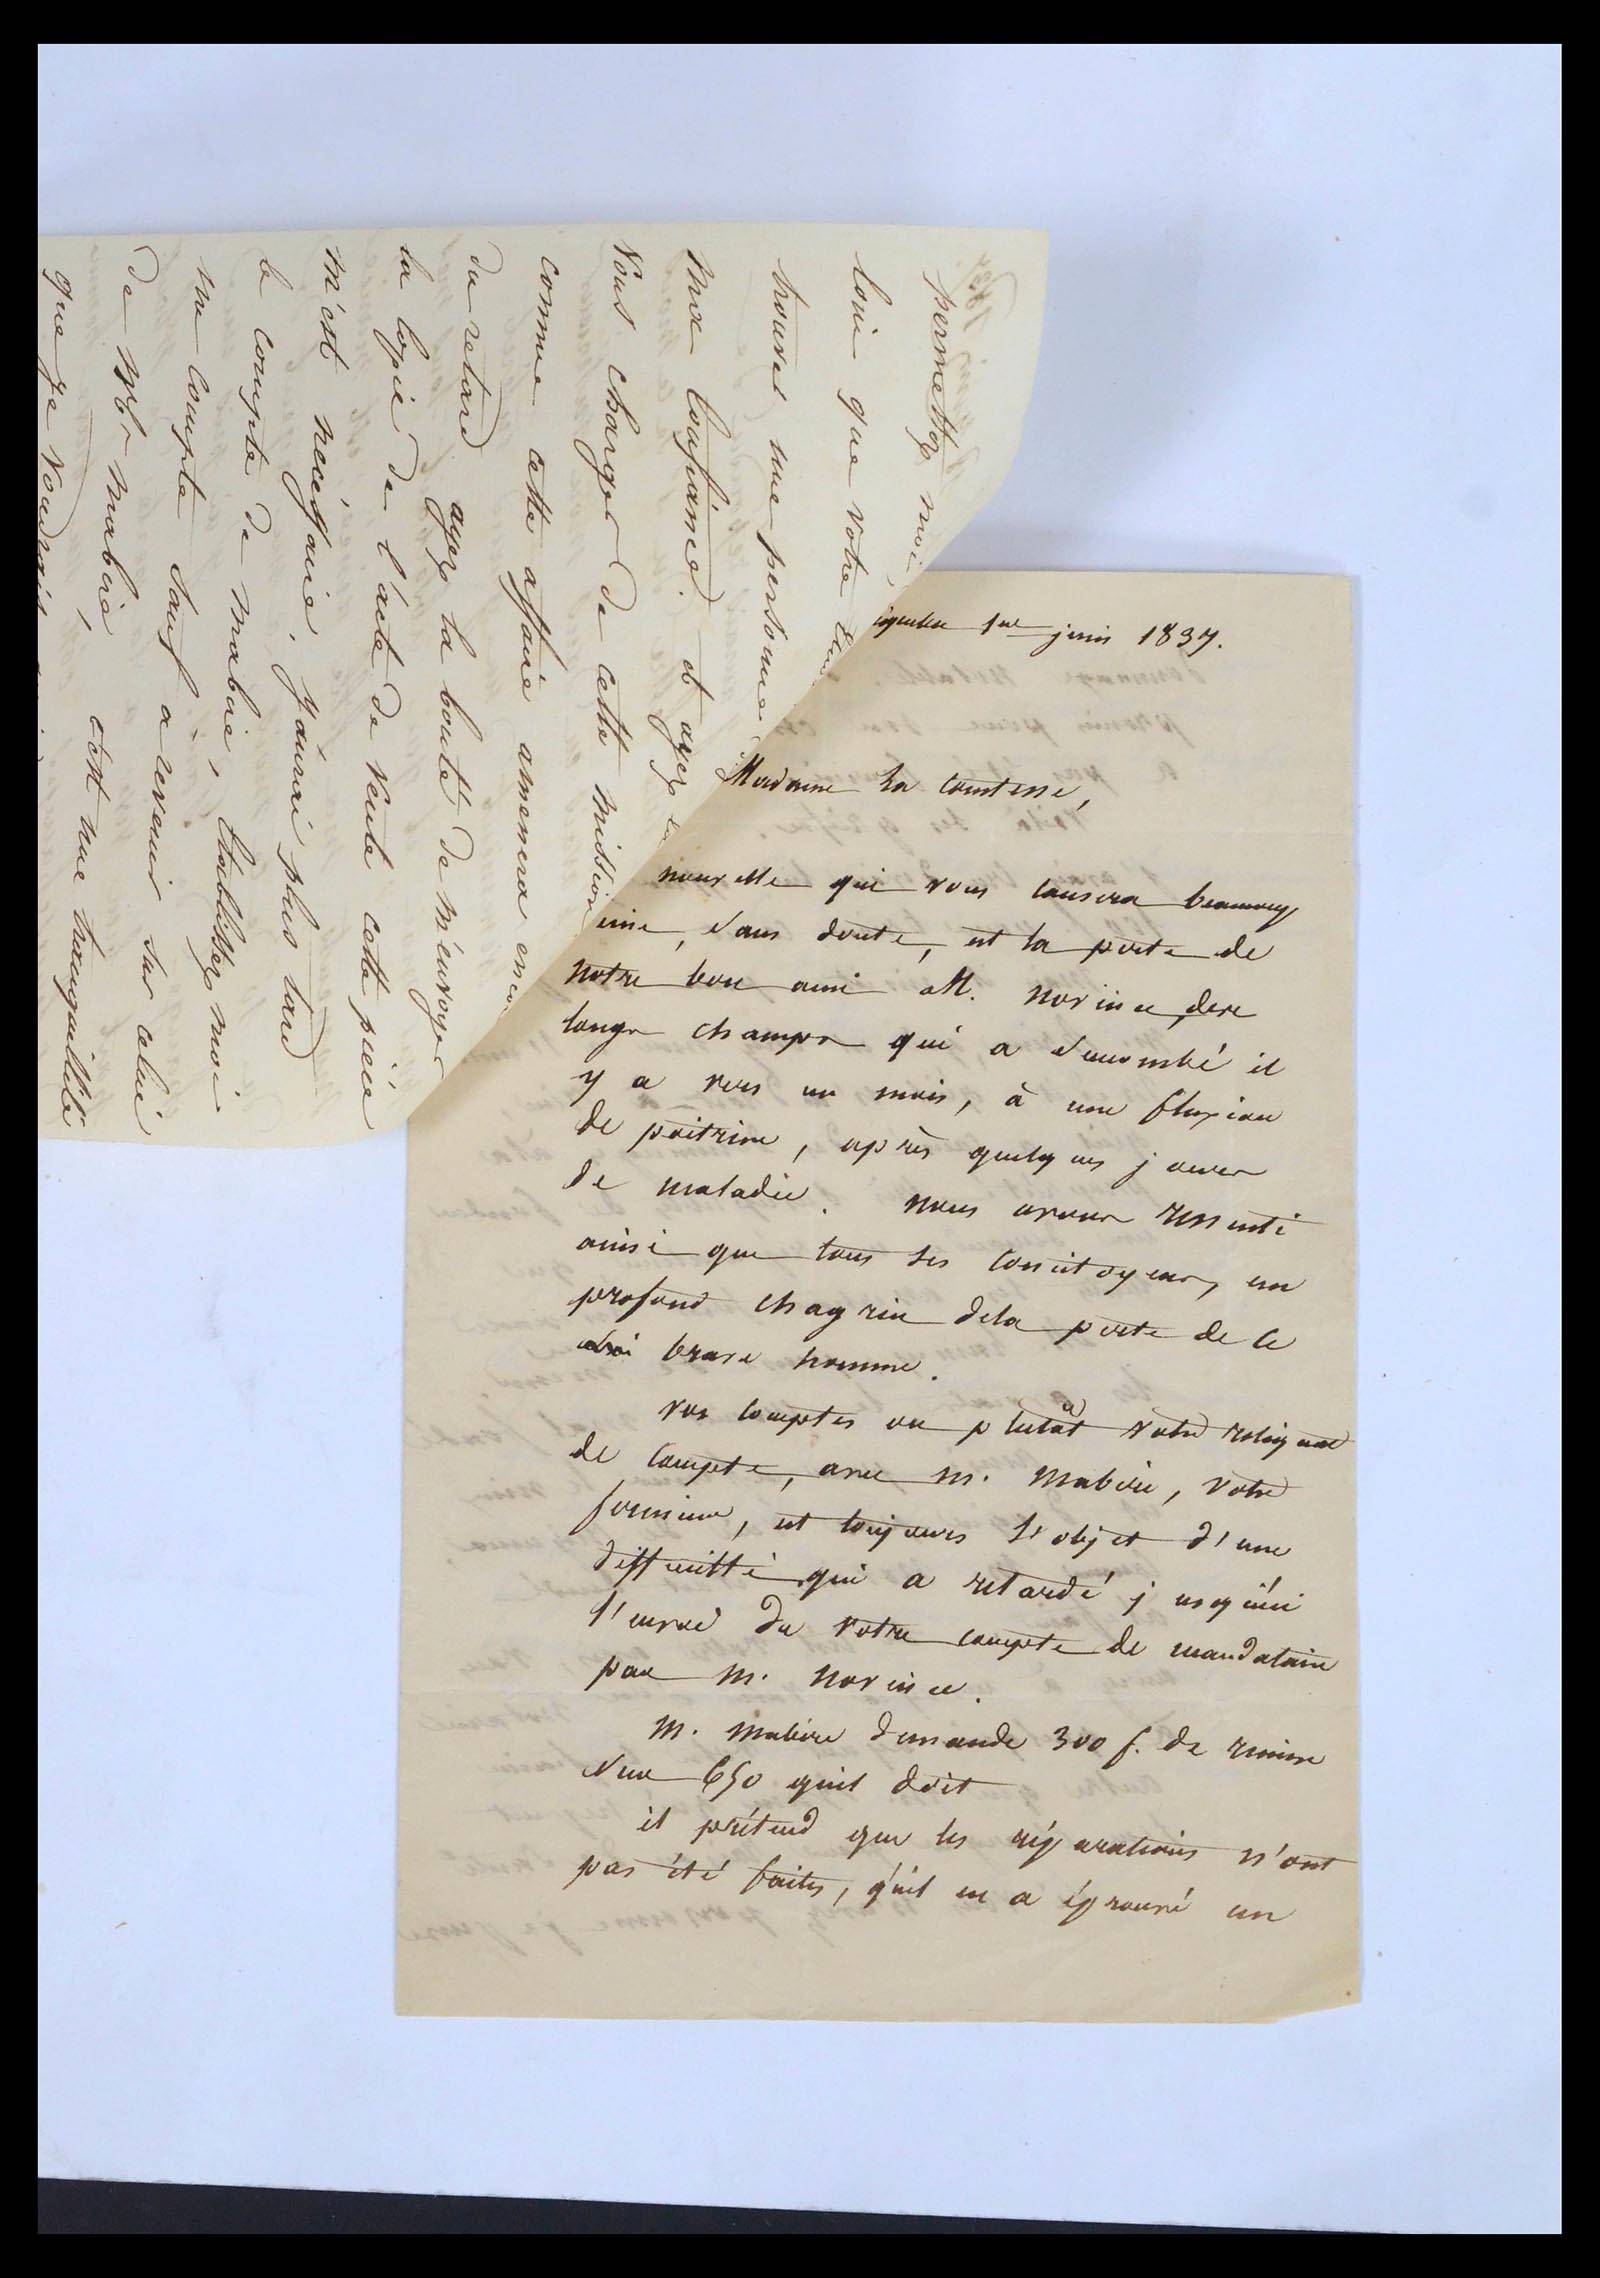 permettez moi
loin que votre
trouver une personne
ma confiance. et ayez la
vous charger de cette mission
comme cette affaire amenera enco
du retard ayez la bonté de m'envoyer
la copie de l'acte de vente cette pièce
m'est necessaire. j'aurai plus tard
le compte de mabire, etablissez moi
un compte sauf a revenir sur celui
de Mr mabire, c'est une tranquillité
que je voudrais
1er juin 1837.
Madame la comtesse,
nouvelle qui vous causera beaucoup
eine, sans doute, est la perte de
notre bon ami M. Norince dere
longs champs qui a succombé il
y a vers un mois, à une fluxion
de poitrine, après quelques jours
de maladie. nous avons ressenti
ainsi que tous ses concitoyens, un
profond chagrin dela perte de ce
brave homme.
vos comptes ou plutôt votre
de compte, avec M. Mabire, votre
fermier, est toujours l'objet d'une
difficulté qui a retardé jusqu'ici
l'envoi du votre compte de mandataire
par M. Norince.
M. Mabire demande 300 f. de remise
sur 650 qu'il doit
il prétend que les réparations n'ont
pas été faites, qu'il en a éprouvé un